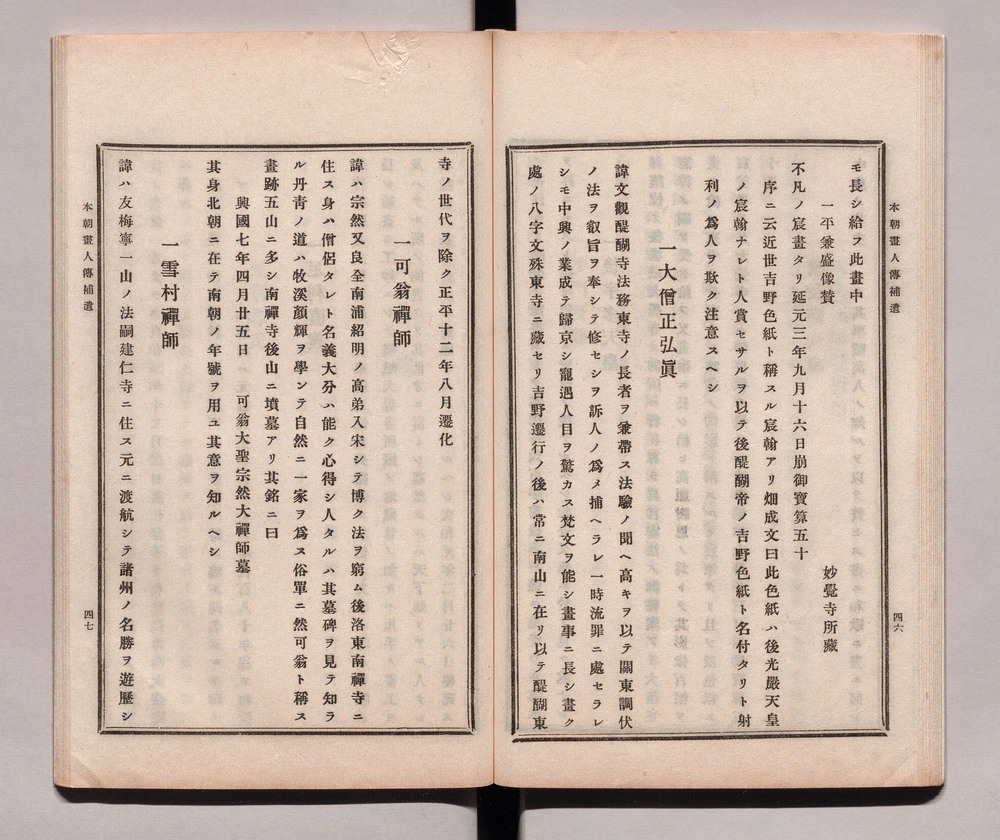 本朝畫人傳補遺
四六
モ長シ給フ此畫中
一平兼盛像贊
妙覺寺所藏
不凡ノ宸畫タリ延元三年九月十六日崩御寶算五十
序ニ云近世吉野色紙ト稱スル宸翰アリ畑成文曰此色紙ハ後光嚴天皇
ノ宸翰ナレト人賞セサルヲ以テ後醍醐帝ノ吉野色紙ト名付タリト射
利ノ爲人ヲ欺ク注意スヘシ
一大僧正弘眞
諱文觀醍醐寺法務東寺ノ長者ヲ兼帶ス法驗ノ聞ヘ高キヲ以テ關東調伏
ノ法ヲ叡旨ヲ奉シテ修セシヲ訴人ノ爲メ捕ヘラレ一時流罪ニ處セラレ
シモ中興ノ業成テ歸京シ寵遇人目ヲ驚カス梵文ヲ能シ畫事ニ長シ畫ク
處ノ八字文殊東寺ニ藏セリ吉野遷行ノ後ハ常ニ南山ニ在リ以テ醍醐東
寺ノ世代ヲ除ク正平十二年八月遷化
一可翁禪師
諱ハ宗然又良全南浦紹明ノ高弟入宋シテ博ク法ヲ窮ム後洛東南禪寺ニ
住ス身ハ僧侶タレト名義大分ハ能ク心得シ人タルハ其墓碑ヲ見テ知ラ
ル丹青ノ道ハ牧溪顔輝ヲ學ンテ自然ニ一家ヲ爲ス俗單ニ然可翁ト稱ス
畫跡五山ニ多シ南禪寺後山ニ墳墓アリ其銘ニ曰
興國七年四月廿五日 可翁大聖宗然大禪師墓
其身北朝ニ在テ南朝ノ年號ヲ用ユ其意ヲ知ルヘシ
一雪村禪師
諱ハ友梅寧一山ノ法嗣建仁寺ニ住ス元ニ渡航シテ諸州ノ名勝ヲ遊歷シ
本朝畫人傳補遺
四七